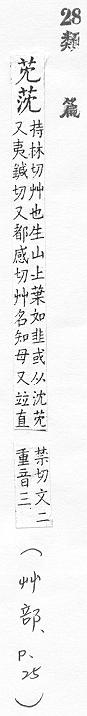 28 類篇
芫莐
持林切艸也生山上葉如韭或从沈芫
又夷鍼切又都感切艸名知母又竝直
禁切文二
重音三
(艸部、P.25)